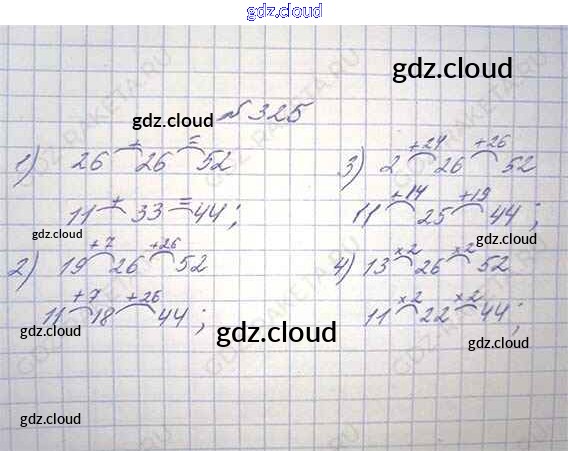 gdz.cloud
gdz.cloud
gdz.cloud
№ 325
1) 26 + 26 = 52
11 + 33 = 44;
gdz.cloud
2) 19 +7 26 +26 52
11 +7 18 +26 44;
3) 2 +24 26 +26 52
11 +14 25 +19 44;
gdz.cloud
4) 13 ×2 26 ×2 52
11 ×2 22 ×2 44;
gdz.cloud
gdz.cloud
gdz.cloud
gdz.cloud